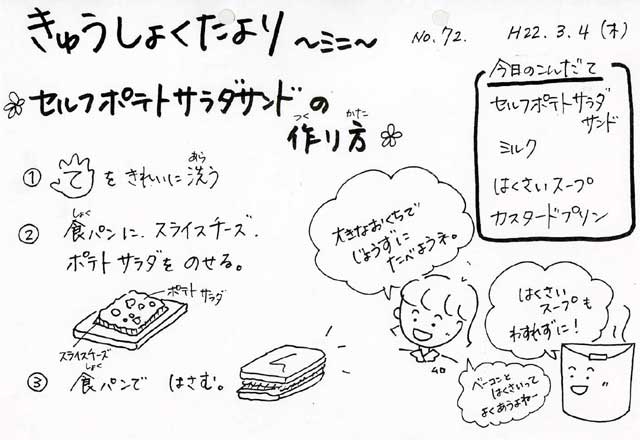 きゅうしょくたより ～ミニ～ No.72. H22.3.4(木)
セルフポテトサラダサンドの
作り方
つく かた
今日のこんだて
セルフポテトサラダ
サンド
ミルク
はくさいスープ
カスタードプリン
① て をきれいに洗う
あら
② 食パンに、スライスチーズ、
しょく
ポテトサラダをのせる。
ポテトサラダ
スライスチーズ
③ 食パンで はさむ。
しょく
大きなおくちで
じょうずに
たべようネ。
はくさい
スープも
わすれずに!
ベーコンと
はくさいって
よくあうよねー